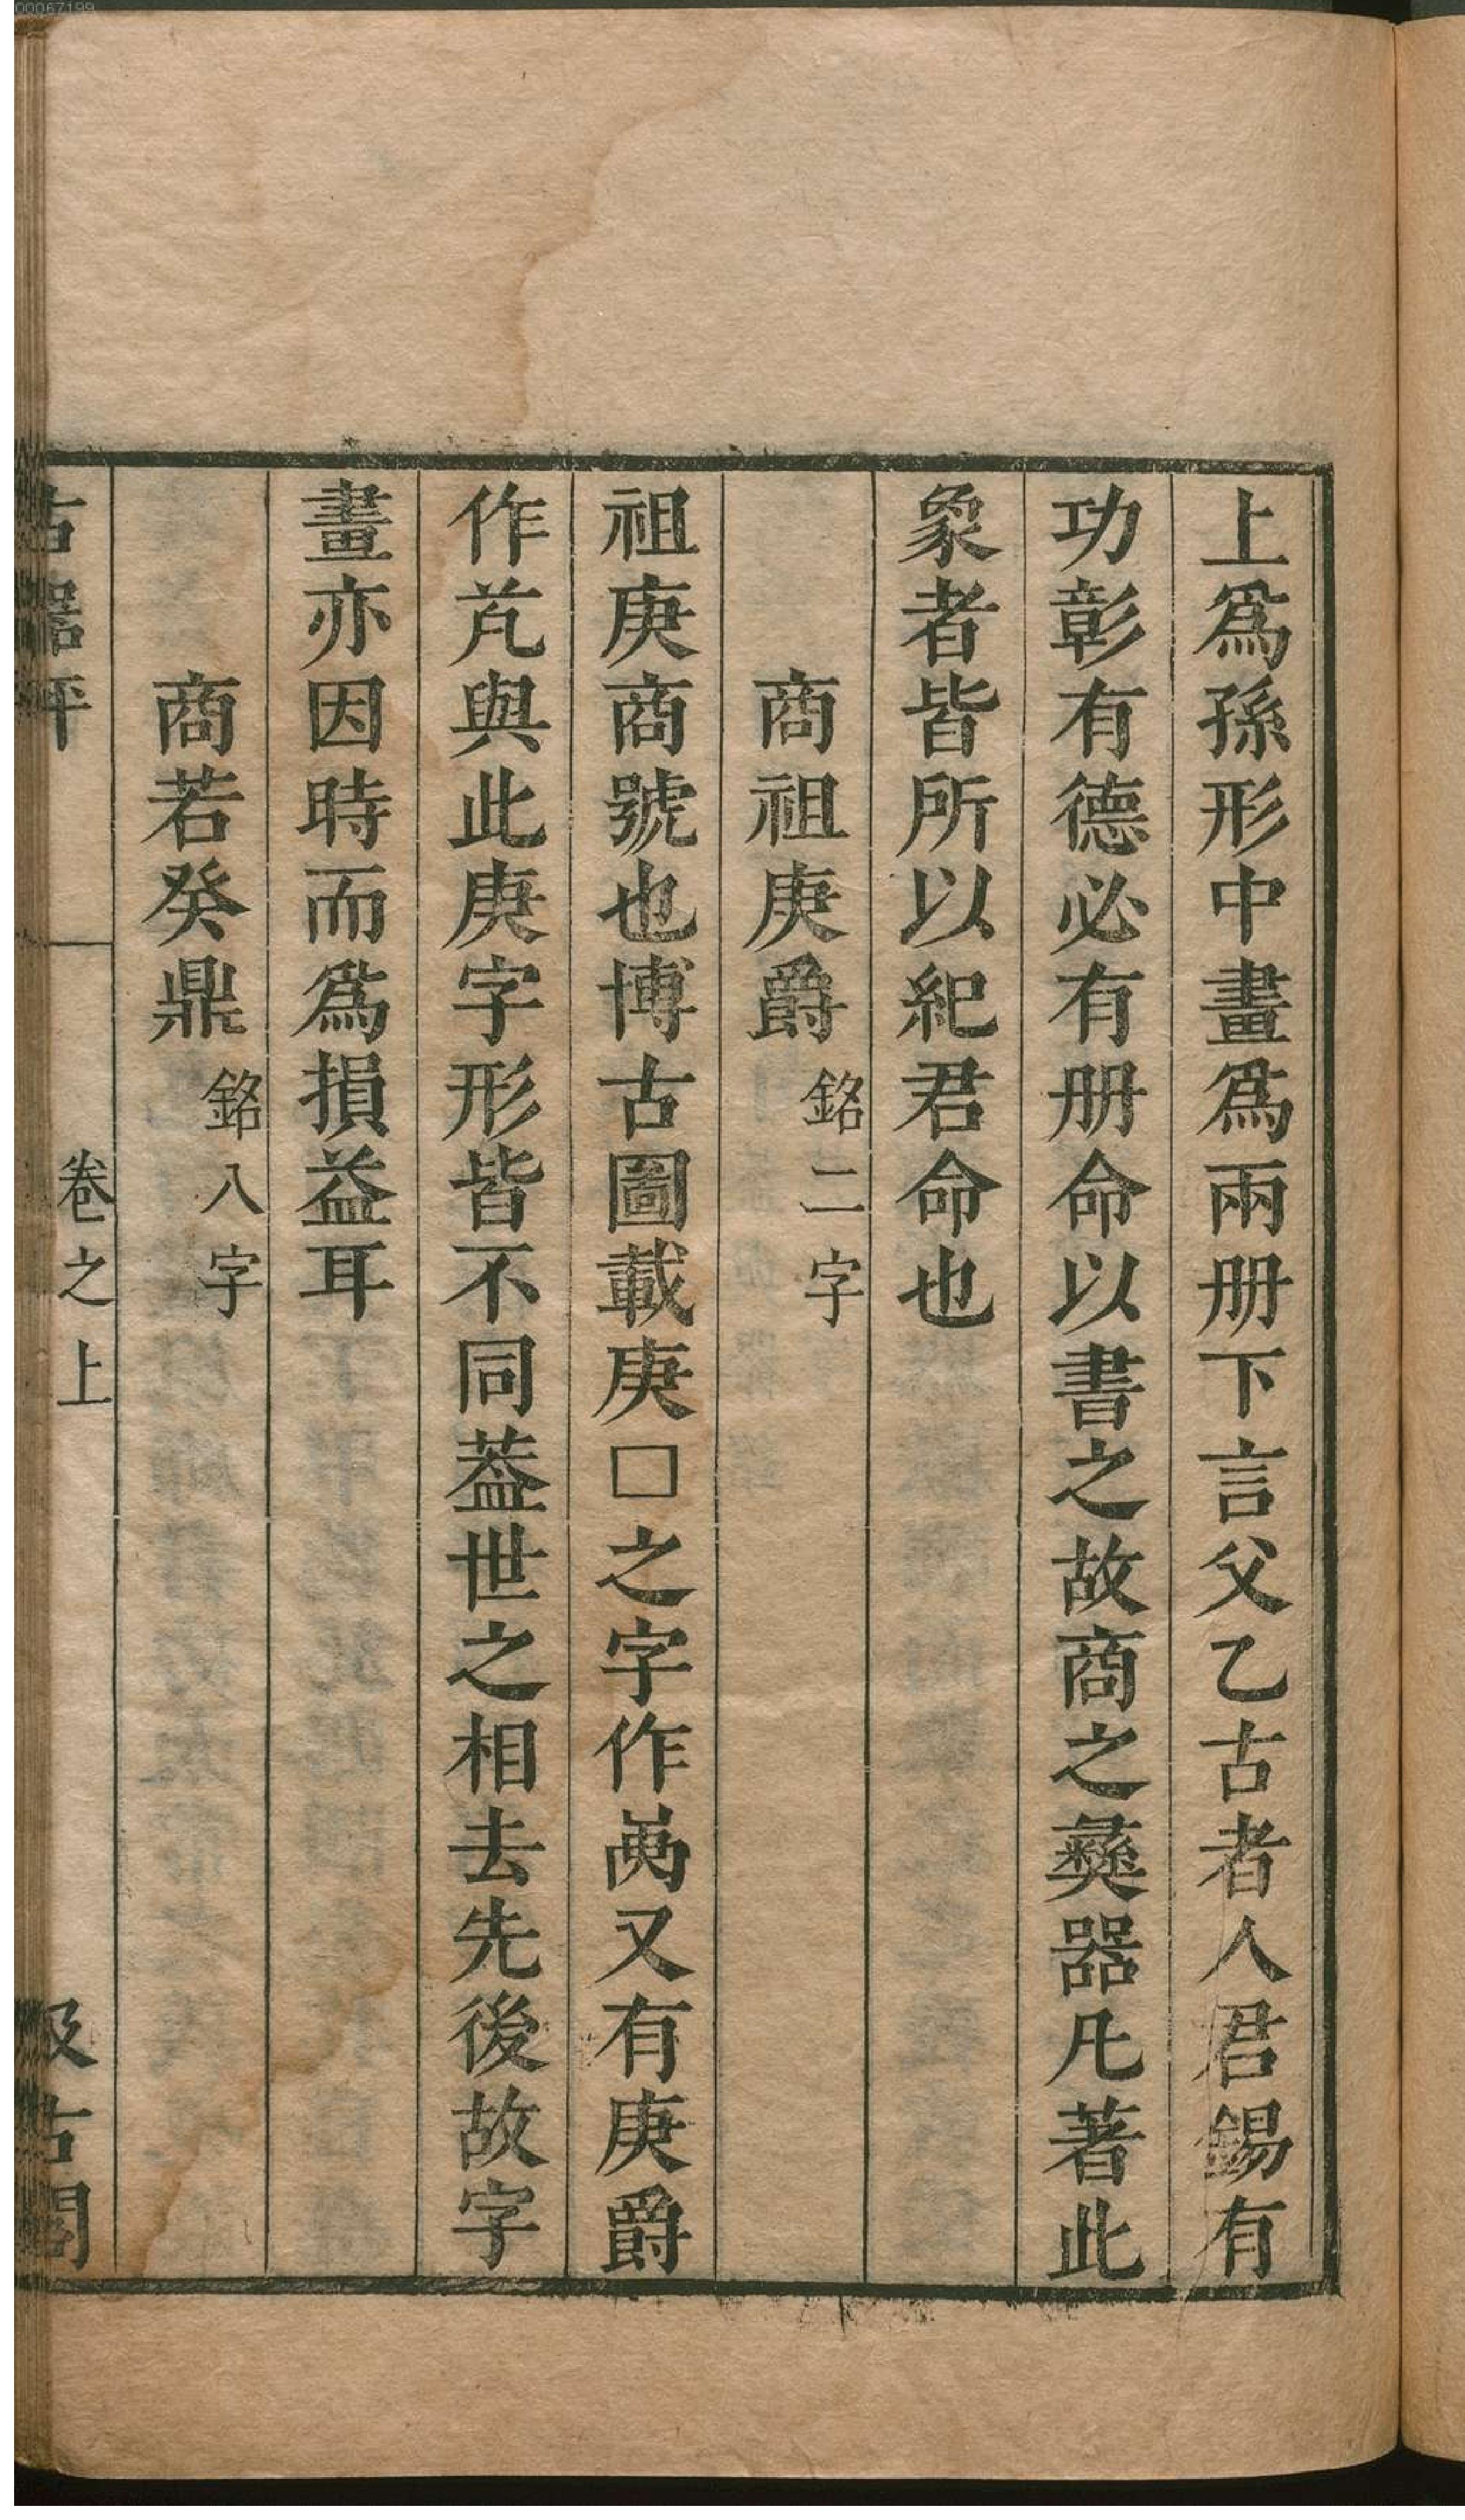 上爲孫形中畫爲兩册下言父乙古者人君錫有
功彰有德必有册命以書之故商之彝器凡著此
象者皆所以紀君命也
商祖庚爵銘二字
祖庚商號也博古圖載庚□之字作又有庚爵
作與此庚字形皆不同葢世之相去先後故字
畫亦因時而爲損益耳
商若癸鼎銘八字
古器評 卷之上 汲古閣
00067199